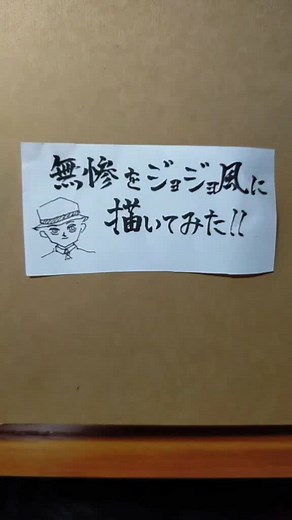 無惨をジョジョ風に
描いてみた!!